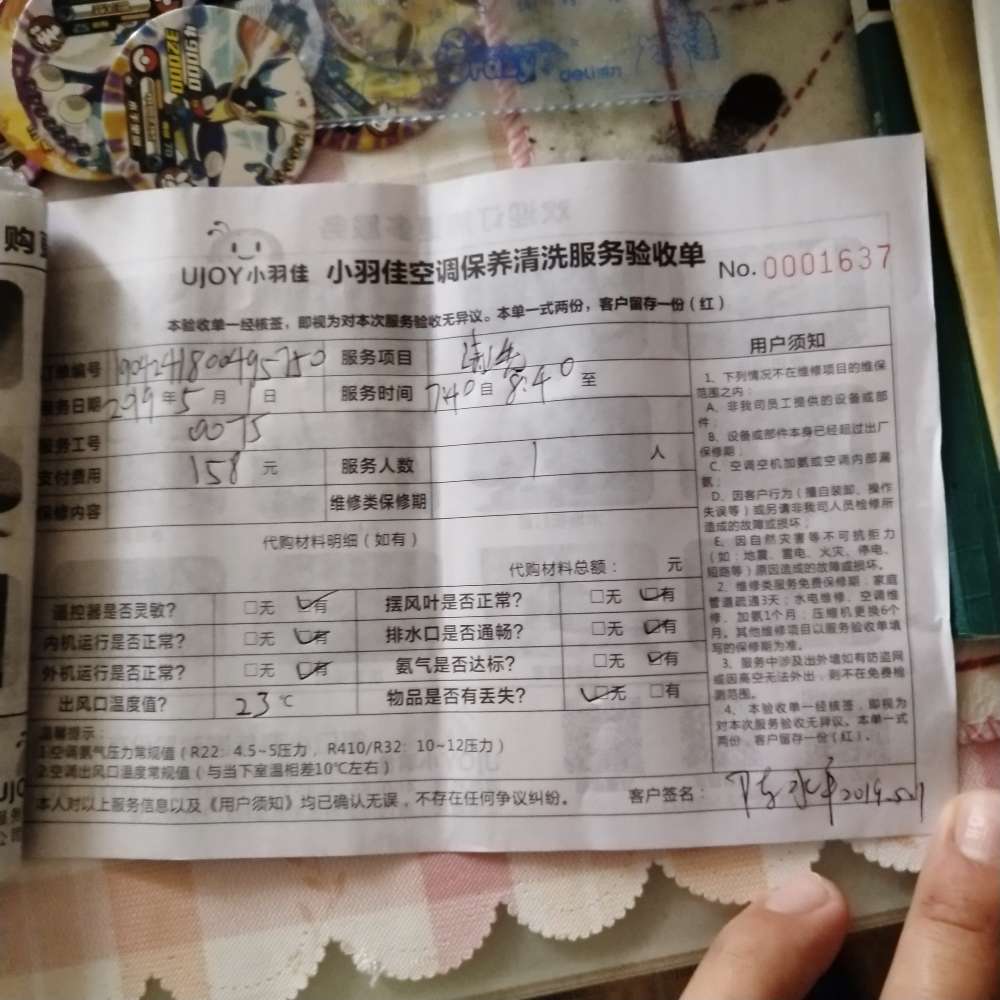 deli
购
UJOY小羽佳 小羽佳空调保养清洗服务验收单 No.0001637
本验收单一经核签，即视为对本次服务验收无异议。本单一式两份，客户留存一份（红）
订单编号 190424180049575 0 服务项目 清洗
服务日期 2019年5月1日 服务时间 740自8:40至
服务工号 0075
支付费用 158元 服务人数 1人
保修内容 维修类保修期
代购材料明细（如有）
代购材料总额： 元
遥控器是否灵敏？ □无 ☑有 摆风叶是否正常？ □无 ☑有
内机运行是否正常？ □无 ☑有 排水口是否通畅？ □无 ☑有
外机运行是否正常？ □无 ☑有 氨气是否达标？ □无 ☑有
出风口温度值？ 23℃ 物品是否有丢失？ ☑无 □有
温馨提示：
1.空调氨气压力常规值（R22：4.5~5压力，R410/R32：10~12压力）
2.空调出风口温度常规值（与当下室温相差10℃左右）
本人对以上服务信息以及《用户须知》均已确认无误，不存在任何争议纠纷。 客户签名： 陈水平 2019.5.1
用户须知
1、下列情况不在维修项目的维保
范围之内：
A、非我司员工提供的设备或部
件；
B、设备或部件本身已经超过出厂
保修期；
C、空调空机加氨或空调内部漏
氨；
D、因客户行为（擅自装卸、操作
失误等）或另请非我司人员检修所
造成的故障或损坏；
E、因自然灾害等不可抗拒力
（如：地震、雷电、火灾、停电、
短路等）原因造成的故障或损坏。
2、维修类服务免费保修期：家庭
管道疏通3天；水电维修、空调维
修、加氨1个月；压缩机更换6个
月。其他维修项目以服务验收单填
写的保修期为准。
3、服务中涉及出外墙如有防盗网
或因高空无法外出，则不在免费检
测范围。
4、本验收单一经核签，即视为
对本次服务验收无异议。本单一式
两份，客户留存一份（红）。